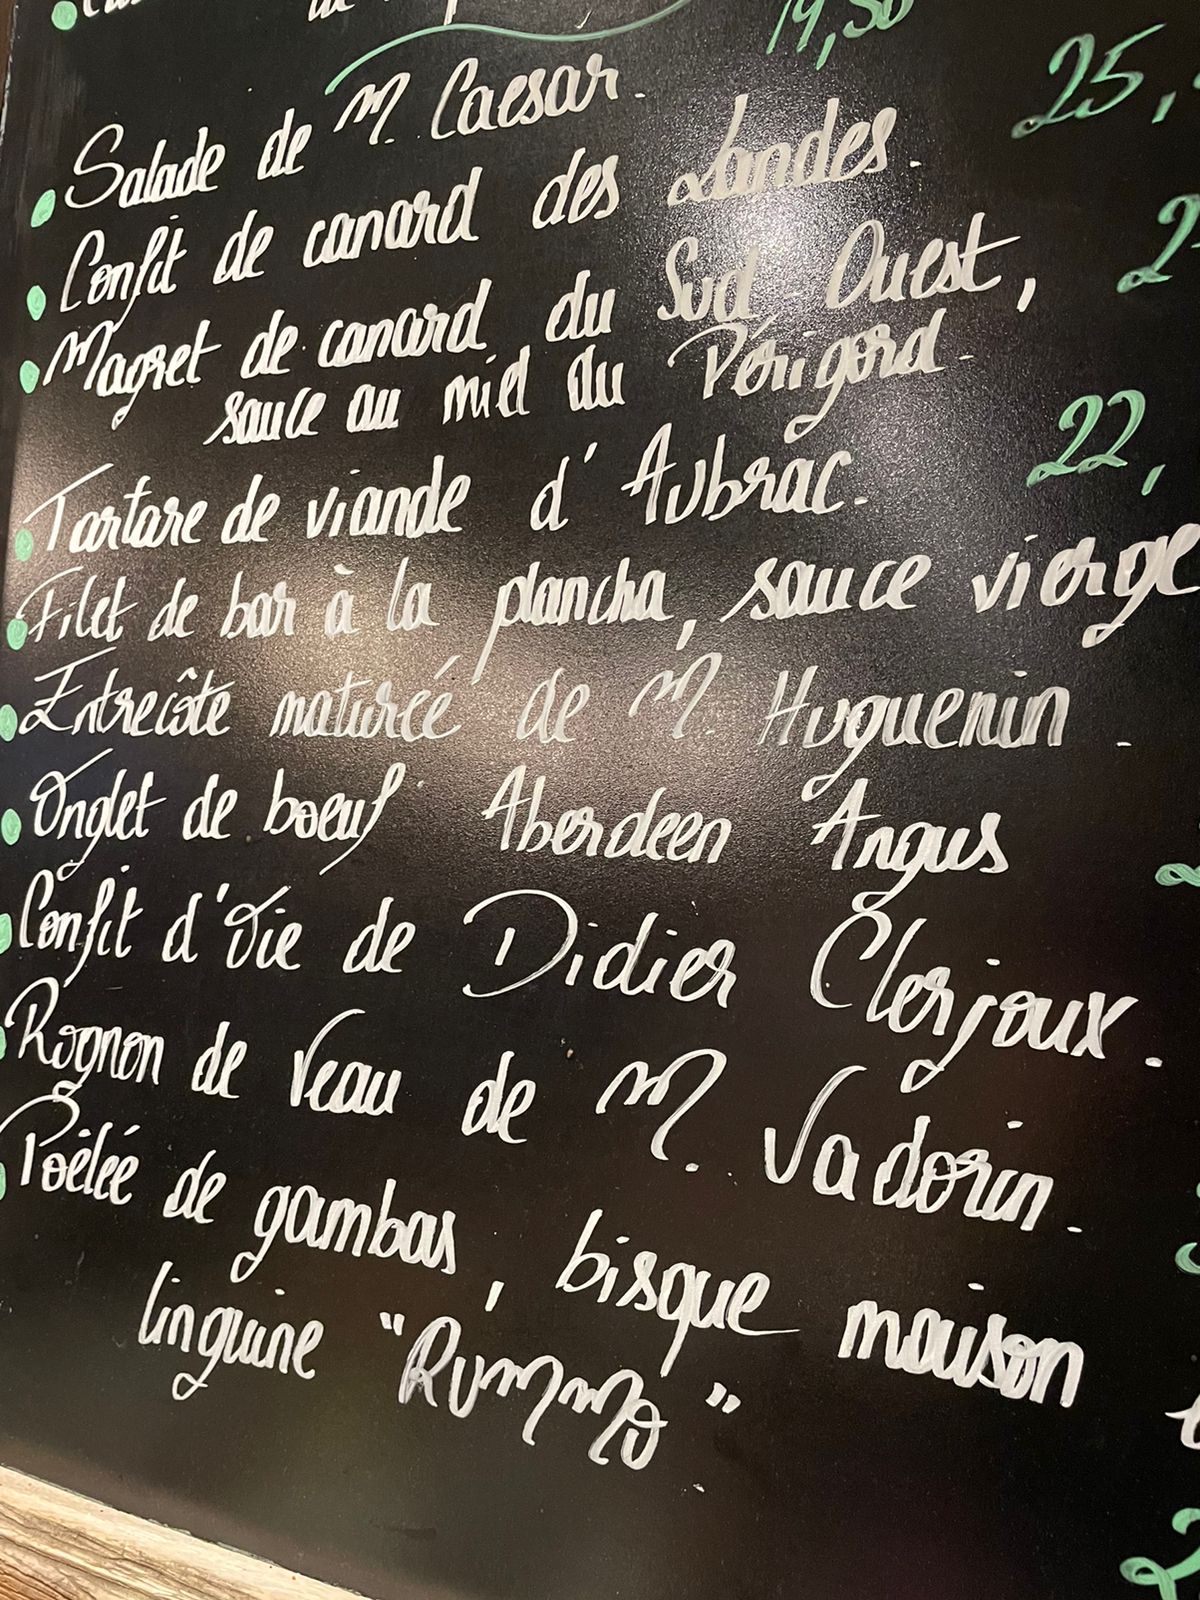 19,50
Salade de M. Caesar.
25,
Confit de canard des Landes.
Magret de canard du Sud Ouest,
sauce au miel du Périgord.
22,
Tartare de viande d'Aubrac.
Filet de bar à la plancha, sauce vierge
Entrecôte maturée de M. Huguenin.
Onglet de boeuf Aberdeen Angus
Confit d'Oie de Didier Clerjoux.
Rognon de Veau de M. Vadorin.
Poêlée de gambas, bisque maison
linguine "RUMMO"